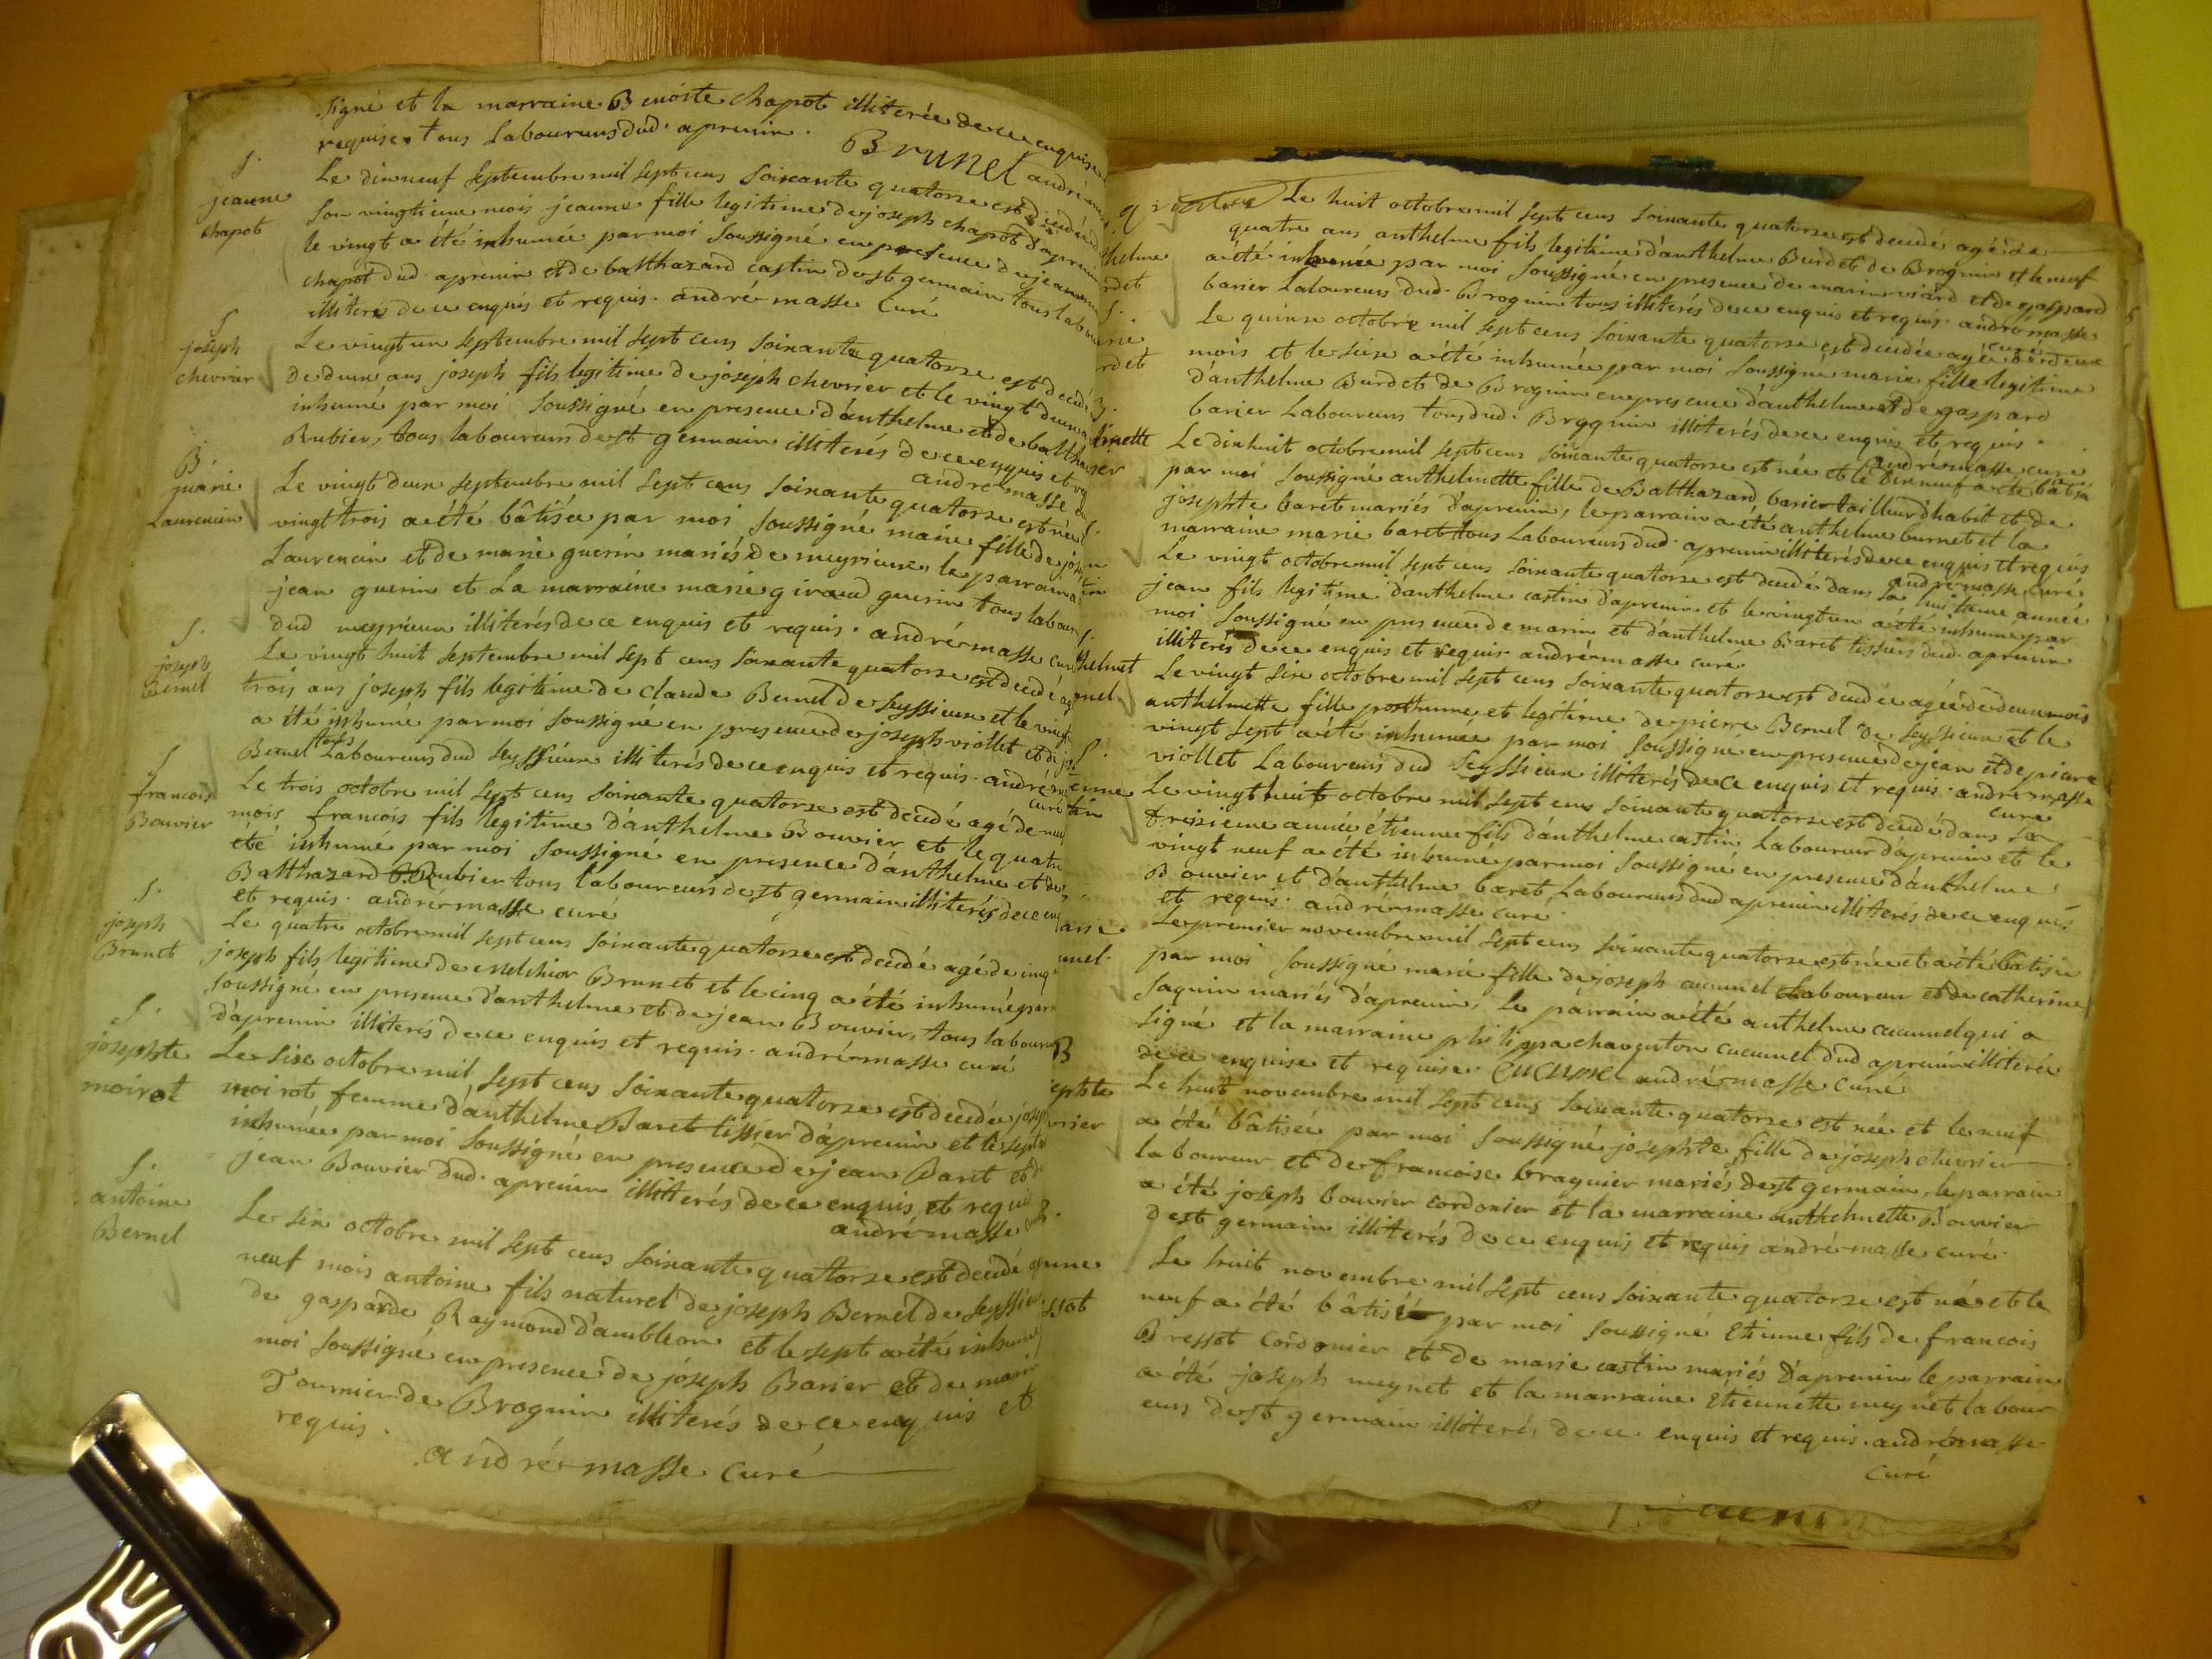 signé et la marraine Benoite chapot illiterée de ce enquise
requise. tous Laboureurs dud. apremin.
Brunet andré
S.
jeanne
chapot
Le dixneuf septembre mil sept cens soixante quatorze est decedée
son vingtieme mois jeanne fille legitime de joseph chapot d'apremin
le vingt a été inhumée par moi soussigné en presence de jean
chapot dud. apremin et de balthazard castin de st germain tous labou
illiterés de ce enquis et requis. andré masse Curé
S
joseph
chevrier
Le vingt un septembre mil sept cens soixante quatorze est decedé
de deux ans joseph fils legitime de joseph chevrier et le vingt deux a
inhumé par moi soussigné en presence d'anthelme et de balthazar
Rubier, tous laboureurs de st germain illiterés de ce enquis et
andré masse
B.
marie
Laurencin
Le vingt deux septembre mil sept cens soixante quatorze est née
vingt trois a été bâtisée par moi soussigné marie fille de
Laurencin et de marie guerin mariés de meyrieux le parrain a
jean guerin et La marraine marie giraud guerin tous labour
dud meyrieux illiterés de ce enquis et requis. andré masse curé
S.
joseph
Bernel
Le vingt huit septembre mil sept cens soixante quatorze est decedé agé
trois ans joseph fils legitime de claude Bernel de seyssieux et le vingt
a été inhumé par moi soussigné en presence de joseph viollet et de
Bernel tous Laboureurs dud seyssieux illiterés de ce enquis et requis. andré
curé
S
francois
Bouvier
Le trois octobre mil sept cens soixante quatorze est decedé agé de neuf
mois francois fils legitime d'anthelme Bouvier et le quatre
été inhumé par moi soussigné en presence d'anthelme et de
Balthazard Rubier tous laboureurs de st germain illiterés de ce
et requis. andré masse curé
S.
joseph
Brunet
Le quatre octobre mil sept cens soixante quatorze est decedé agé de cinq
joseph fils legitime de melchior Brunet et le cinq a été inhumé par
soussigné en presence d'anthelme et de jean Bouvier, tous labour
d'apremin illiterés de ce enquis et requis. andré masse curé
S.
josephte
moirot
Le six octobre mil sept cens soixante quatorze est decedée
moirot femme d'anthelme Baret tissier d'apremin et le sept
inhumée par moi soussigné en presence de jean Baret et
jean Bouvier dud. apremin illiterés de ce enquis et requis
andré masse
S.
antoine
Bernel
Le six octobre mil sept cens soixante quatorze est decedé
neuf mois antoine fils naturel de joseph Bernel de seyssieux
de gasparde Raymond d'ambleon et le sept a été inhumé
moi soussigné en presence de joseph Barier et de
Tournier de Brognin illiterés de ce enquis et
requis.
andré masse curé
Le huit octobre mil sept cens soixante quatorze est decedé agé de
quatre ans anthelme fils legitime d'anthelme Burdet de Brognin et le neuf
a été inhumé par moi soussigné en presence de marin viard et de gaspard
barier Laboureurs dud. Brognin tous illiterés de ce enquis et requis. andré masse
curé
Le quinze octobre mil sept cens soixante quatorze est decedée agée de deux
mois et le seize a été inhumée par moi soussigné marie fille legitime
d'anthelme Burdet de Brognin en presence d'anthelme et de gaspard
barier Laboureurs tous dud. Brognin illiterés de ce enquis et requis.
andré masse curé
Le dixhuit octobre mil sept cens soixante quatorze est née et le dixneuf a été bâtisée
par moi soussigné anthelmette fille de Balthazard barier tailleur d'habit et de
josephte baret mariés d'apremin, le parrain a été anthelme burnet et la
marraine marie baret tous Laboureurs dud. apremin illiterés de ce enquis et requis
andré masse curé
Le vingt octobre mil sept cens soixante quatorze est decedé dans sa huitieme année
jean fils legitime d'anthelme castin d'apremin et le vingt un a été inhumé par
moi soussigné en presence de marin et d'anthelme Baret tissiers dud. apremin
illiterés de ce enquis et requis. andré masse curé
Le vingt six octobre mil sept cens soixante quatorze est decedée agée de deux mois
anthelmette fille posthume et legitime de pierre Bernel de seyssieux et le
vingt sept a été inhumée par moi soussigné en presence de jean et de pierre
viollet Laboureurs dud seyssieux illiterés de ce enquis et requis. andré masse
curé
Le vingt huit octobre mil sept cens soixante quatorze est decedé dans sa
treizieme année étienne fils d'anthelme castin Laboureur d'apremin et le
vingt neuf a été inhumé par moi soussigné en presence d'anthelme
Bouvier et d'anthelme baret Laboureurs dud apremin illiterés de ce enquis
et requis. andré masse curé
Le premier novembre mil sept cens soixante quatorze est née et a été bâtisée
par moi soussigné marie fille de joseph cucumel Laboureur et de catherine
saquin mariés d'apremin, Le parrain a été anthelme cucumel qui a
signé et la marraine philippa chaventon cucumel dud apremin illiterée
de ce enquise et requise. cucumel andré masse curé
Le huit novembre mil sept cens soixante quatorze est née et le neuf
a été bâtisée par moi soussigné josephte fille de joseph chevrier
laboureur et de francoise braguier mariés de st germain, le parrain
a été joseph bouvier cordonier et la marraine anthelmette Bouvier
de st germain illiterés de ce enquis et requis andré masse curé
Le huit novembre mil sept cens soixante quatorze est né et le
neuf a été bâtisé par moi soussigné Etienne fils de francois
Bressot cordonier et de marie castin mariés d'apremin le parrain
a été joseph meynet et la marraine Etiennette meynet labour
eurs de st germain illiterés de ce enquis et requis. andré masse
curé